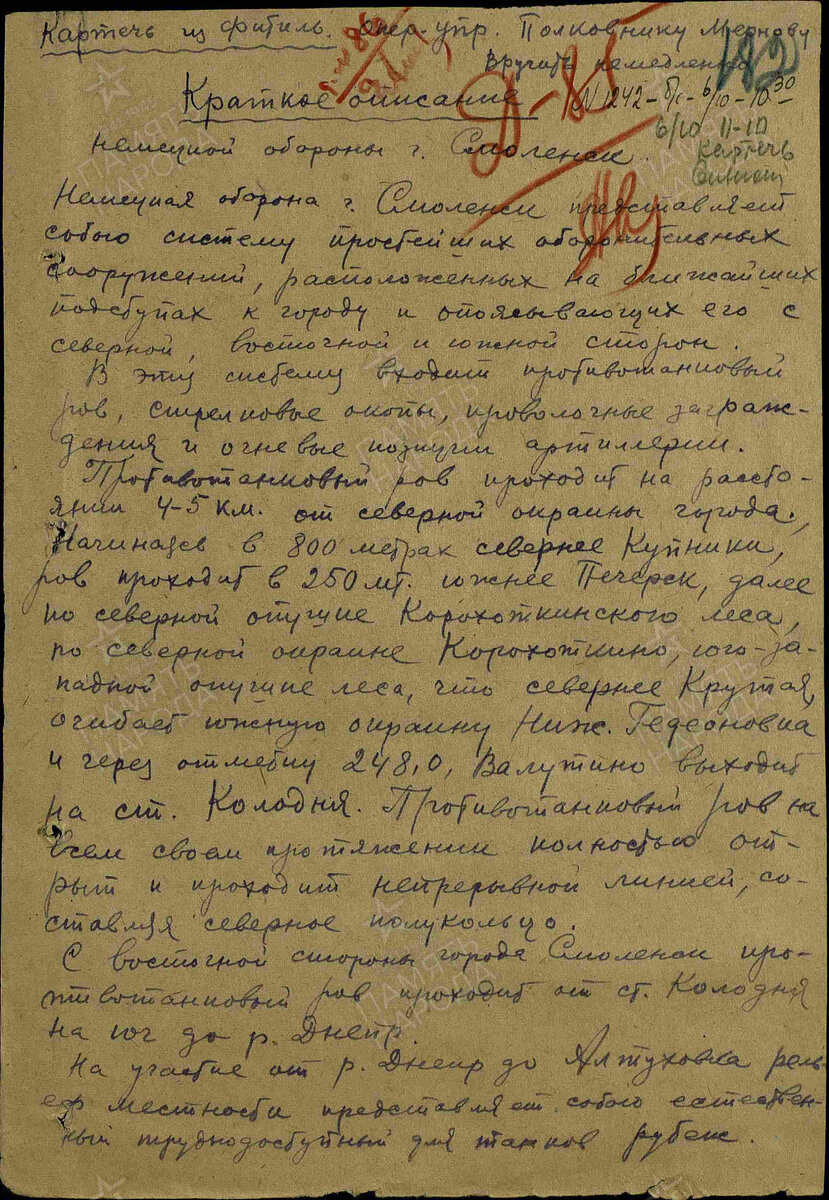 Картечь из Фитиль. Опер. упр. Полковнику Мернову
Вручить немедленно
182
Д-85
Краткое описание N 1242 - 6/10 - 10 30
6/10 11-10
немецкой обороны г. Смоленск. Картечь
Немецкая оборона г. Смоленск представляет
собою систему простейших оборонительных
сооружений, расположенных на ближайших
подступах к городу и опоясывающих его с
северной, восточной и южной сторон.
В эту систему входит противотанковый
ров, стрелковые окопы, проволочные заграж-
дения и огневые позиции артиллерии.
Противотанковый ров проходит на рассто-
янии 4-5 км. от северной окраины города.
Начинаясь в 800 метрах севернее Купники,
ров проходит в 250 мт. южнее Печерск, далее
по северной опушке Корохоткинского леса,
по северной окраине Корохоткино, юго-за-
падной опушке леса, что севернее Крутая,
огибает южную окраину Ниж. Гедеоновка
и через отметку 248,0, Валутино выходит
на ст. Колодня. Противотанковый ров на
всем своем протяжении полностью от-
рыт и проходит непрерывной линией, со-
ставляя северное полукольцо.
С восточной стороны города Смоленск про-
тивотанковый ров проходит от ст. Колодня
на юг до р. Днепр.
На участке от р. Днепр до Алтуховка рель-
еф местности представляет собою естествен-
ный труднодоступный для танков рубеж.